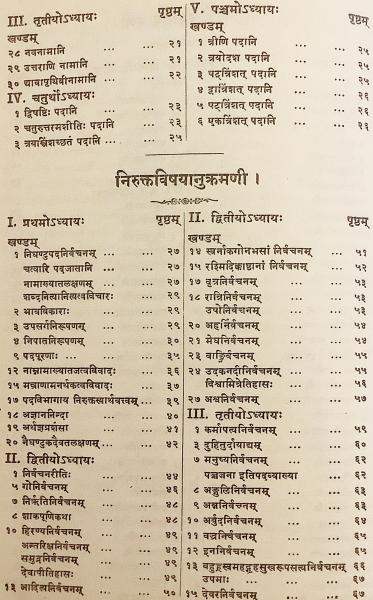 III. तृतीयोऽध्यायः पृष्ठम्
खण्डम्
२८ नवनामानि ... ... २१
२९ उत्तराणि नामानि ... २१
३० द्यावापृथिवीनामानि ... २२
IV. चतुर्थोऽध्यायः
१ द्विषष्टिः पदानि ... २३
२ चतुरुत्तरमशीतिः पदानि ... २३
३ त्रयस्त्रिंशच्छतं पदानि ... २५
V. पञ्चमोऽध्यायः
खण्डम् पृष्ठम्
१ त्रीणि पदानि ... ... २५
२ त्रयोदश पदानि ... ... २५
३ षट्त्रिंशत् पदानि ... ... २५
४ द्वात्रिंशत् पदानि ... ... २६
५ षट्त्रिंशत् पदानि ... ... २६
६ एकत्रिंशत् पदानि ... ... २६
निरुक्तविषयानुक्रमणी ।
I. प्रथमोऽध्यायः पृष्ठम्
खण्डम्
१ निघण्टुपदनिर्वचनम् ... ... २७
चत्वारि पदजातानि ... २७
नामाख्यातलक्षणम् ... ... २७
शब्दनित्यानित्यत्वविचारः ... २९
२ भावविकाराः ... ... २९
३ उपसर्गनिरूपणम् ... ... २९
४ निपातनिरूपणम् ... ... ३०
९ पदपूरणाः ... ... ३५
१२ नाम्नामाख्यातजत्वविवादः ... ३६
१५ मन्त्राणामनर्थकत्वविवादः ... ३७
१७ पदविभागाय निरुक्तस्यार्थवत्त्वम् ... ३९
१८ अज्ञाननिन्दा ... ... ४०
१९ अर्थज्ञप्रशंसा ... ... ४१
२० नैघण्टुकदैवतलक्षणम् ... ... ४२
II. द्वितीयोऽध्यायः
१ निर्वचनरीतिः ... ... ४४
५ गोनिर्वचनम् ... ... ४६
७ निर्ऋतिनिर्वचनम् ... ... ४८
८ शाकपूणिकथा ... ... ४८
१० हिरण्यनिर्वचनम् ... ... ४९
अन्तरिक्षनिर्वचनम् ... ...
समुद्रनिर्वचनम् ... ...
देवापीतिहासः ... ...
१३ आदित्यनिर्वचनम् ... ... ५०
II. द्वितीयोऽध्यायः पृष्ठम्
खण्डम्
१४ स्वर्नाकगोनभसां निर्वचनम् ... ५१
१५ रश्मिदिक्काष्ठानां निर्वचनम् ... ५२
१७ वृत्रनिर्वचनम् ... ... ५३
१८ रात्रिनिर्वचनम् ... ... ५३
उषोनिर्वचनम् ... ... ५३
२० अहर्निर्वचनम् ... ... ५४
२१ मेघनिर्वचनम् ... ... ५४
२३ वाङ्निर्वचनम् ... ... ५५
२४ उदकनदीनिर्वचनम् ... ... ५६
विश्वामित्रेतिहासः ... ... ५६
२७ अश्वनिर्वचनम् ... ... ५७
III. तृतीयोऽध्यायः
१ कर्मापत्यनिर्वचनम् ... ... ५९
३ दुहितुर्दायाद्यम् ... ... ६०
७ मनुष्यनिर्वचनम् ... ... ६२
पञ्चजना इतिपदव्याख्या ... ६२
८ अङ्गुलिनिर्वचनम् ... ... ६३
९ अन्ननिर्वचनम् ... ... ६३
१० अर्बुदनिर्वचनम् ... ... ६४
११ वज्रनिर्वचनम् ... ... ६५
१२ इननिर्वचनम् ... ... ६५
१३ बहुह्रस्वमहद्गृहसुखरूपसत्यनिर्वचनम् ६६
उपमाः ... ... ६७
१५ देवरनिर्वचनम् ... ... ६७